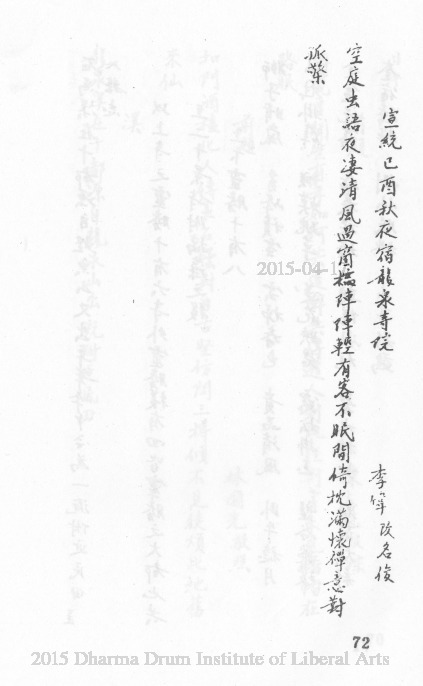 宣統己酉秋夜宿龍泉寺院
李 改名俊
空庭虫語夜淒清風過窗櫺陣陣輕有客不眠閒倚枕滿懷禪意對
孤檠
2015-04-1
72
2015 Dharma Drum Institute of Liberal Arts